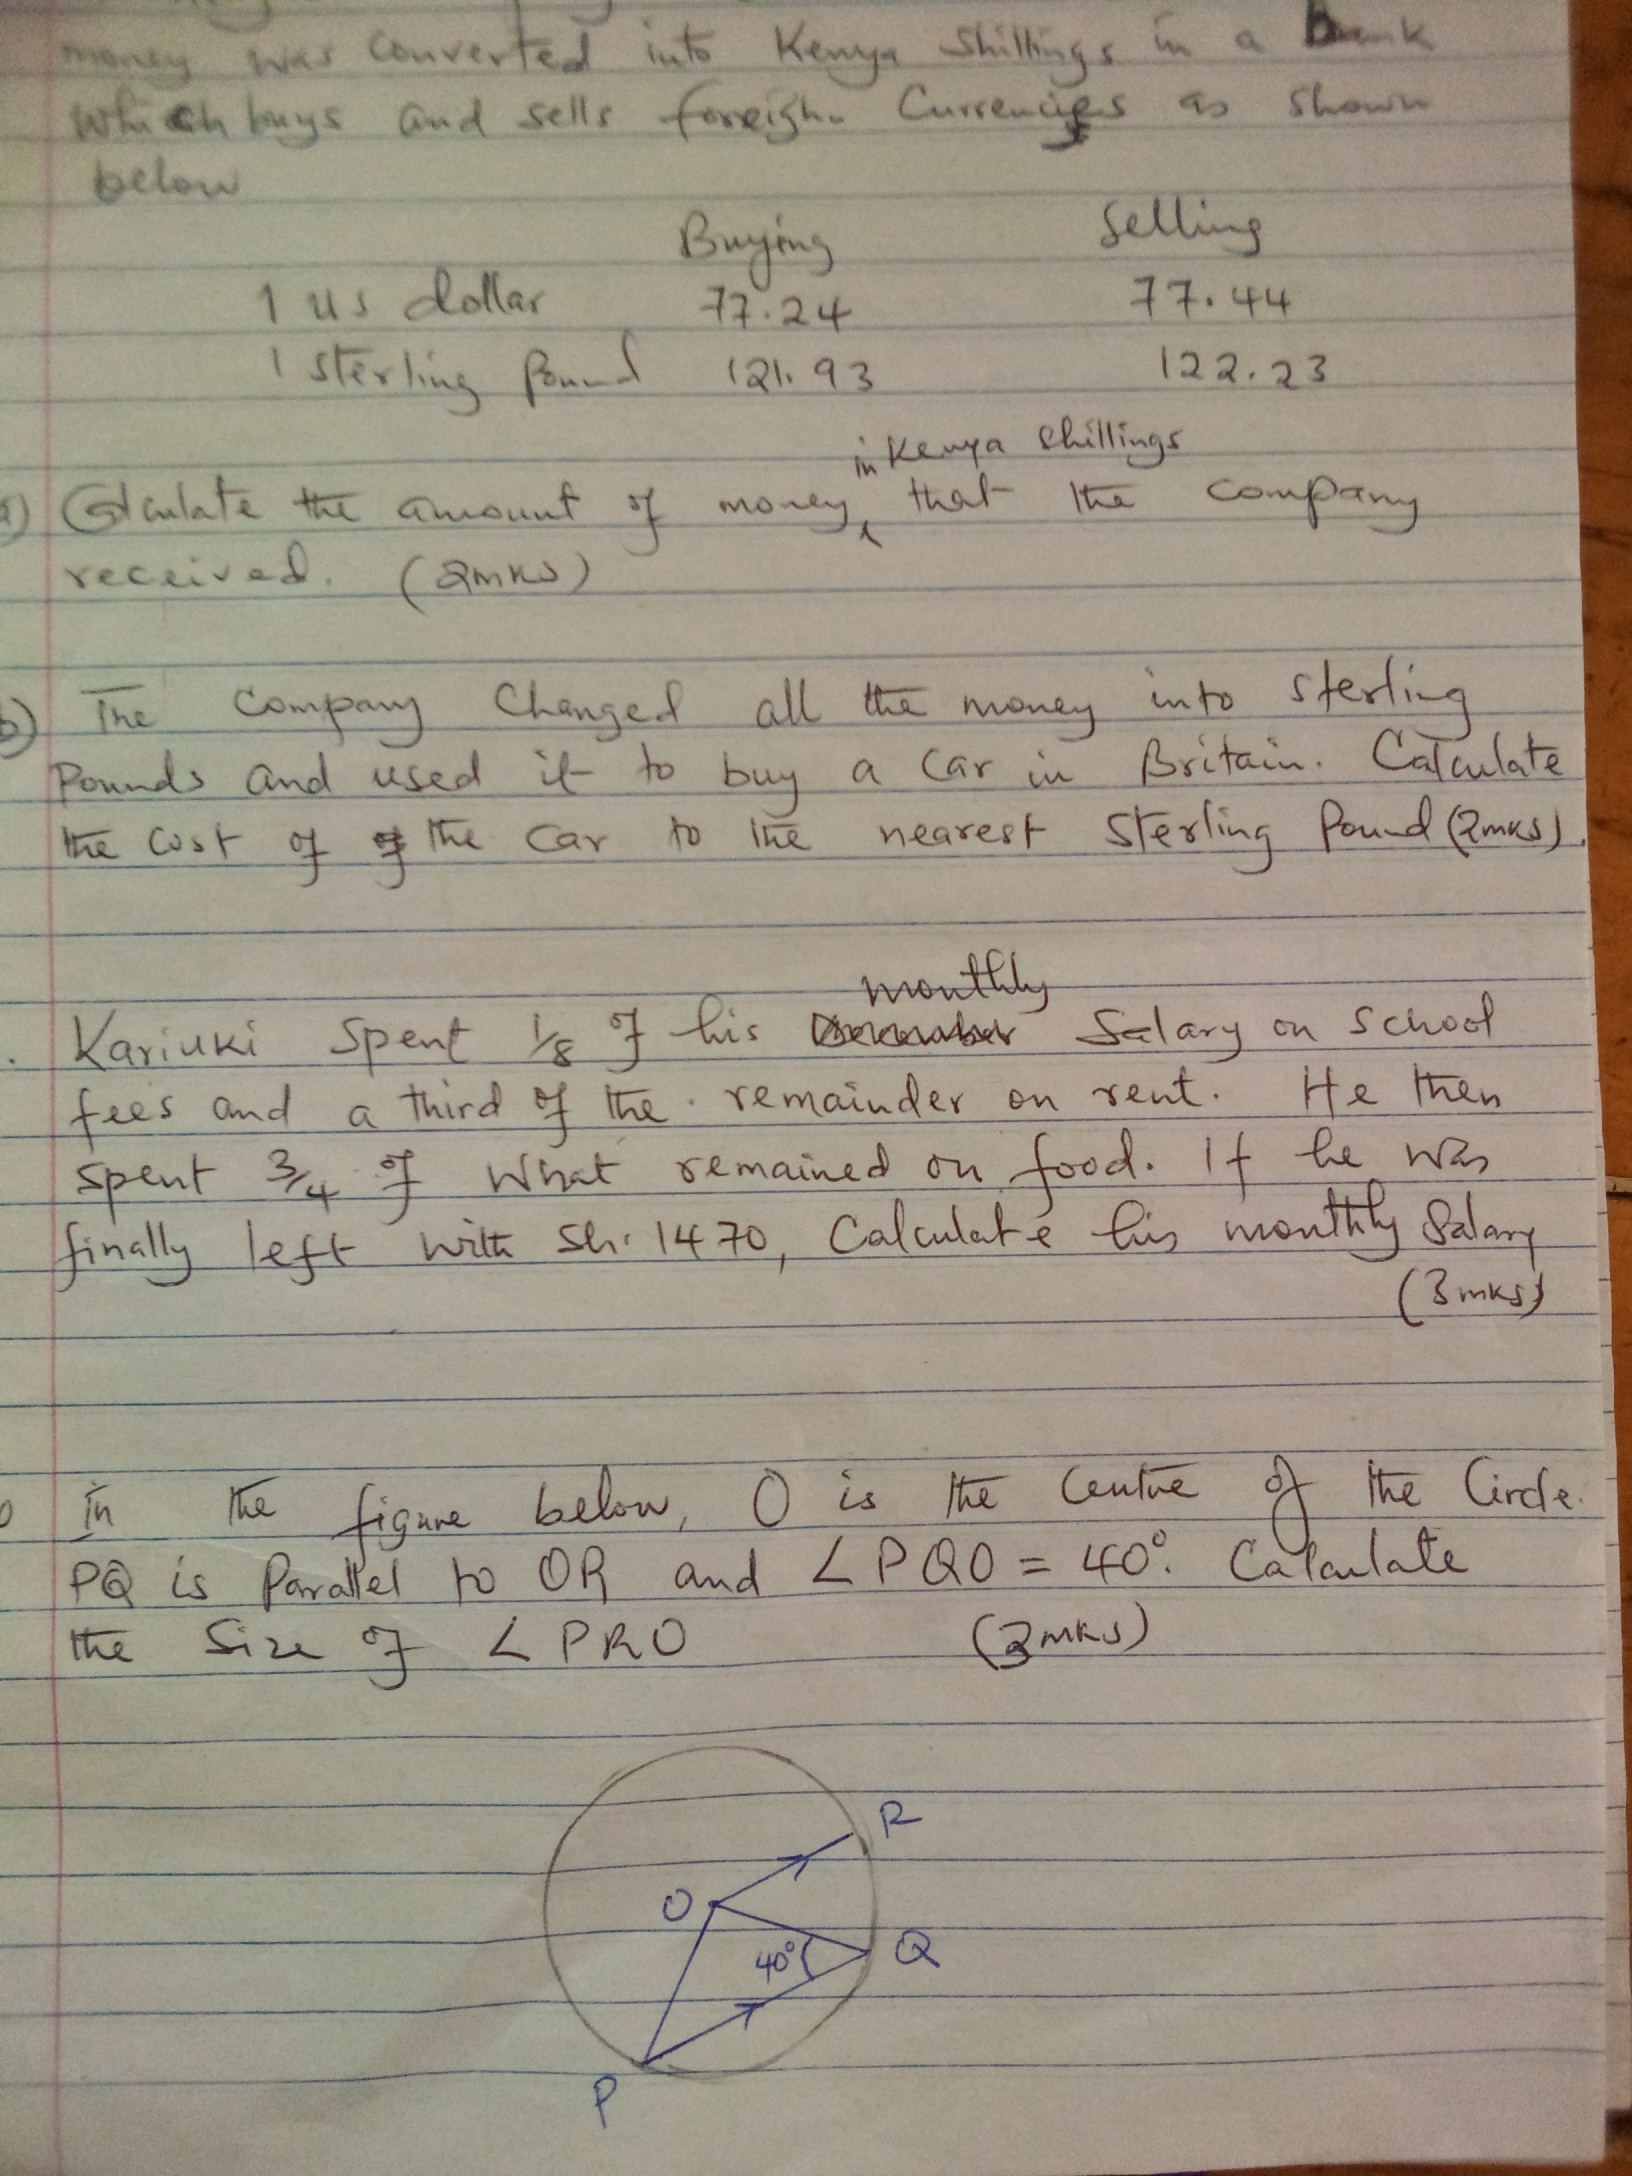 money was converted into Kenya Shillings in a bank
which buys and sells foreign Currencies as shown
below
Buying Selling
1 us dollar 77.24 77.44
1 sterling Pound 121.93 122.23
in Kenya Shillings
a) Calculate the amount of money that the company
received. (2mks)
b) The company changed all the money into sterling
Pounds and used it to buy a car in Britain. Calculate
the cost of of the car to the nearest Sterling Pound (2mks).
monthly
Kariuki spent 1/8 of his December Salary on school
fees and a third of the remainder on rent. He then
spent 3/4 of what remained on food. If he was
finally left with sh. 1470, Calculate his monthly Salary
(3mks)
In the figure below, O is the centre of the Circle.
PQ is Parallel to OR and ∠PQO = 40°. Calculate
the Size of ∠PRO (3mks)
R
O
Q
40°
P